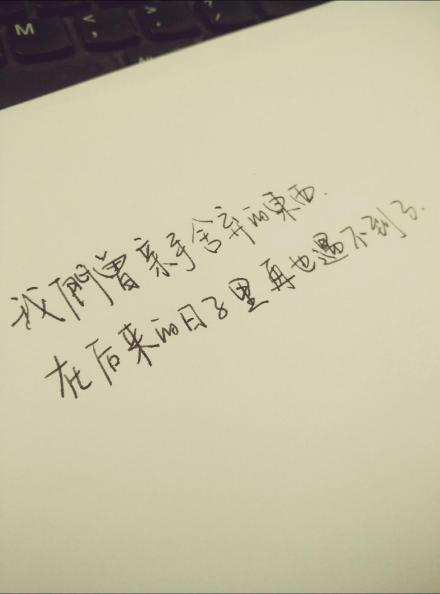 M
我們曾亲手舍弃的東西.
在后来的日子里再也遇不到了.